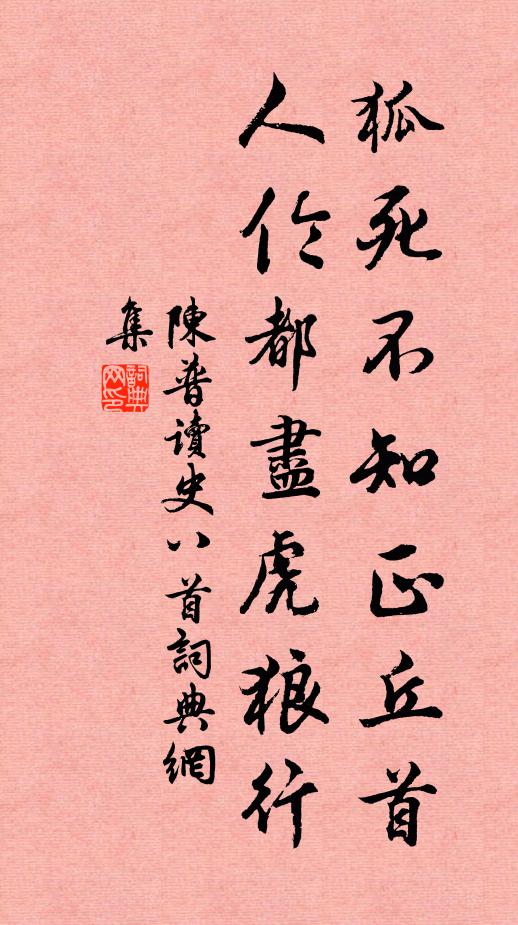 狐死不知正丘首
人伦都盡虎狼行
陳普讀史八首詞典網
集
詞典
网印